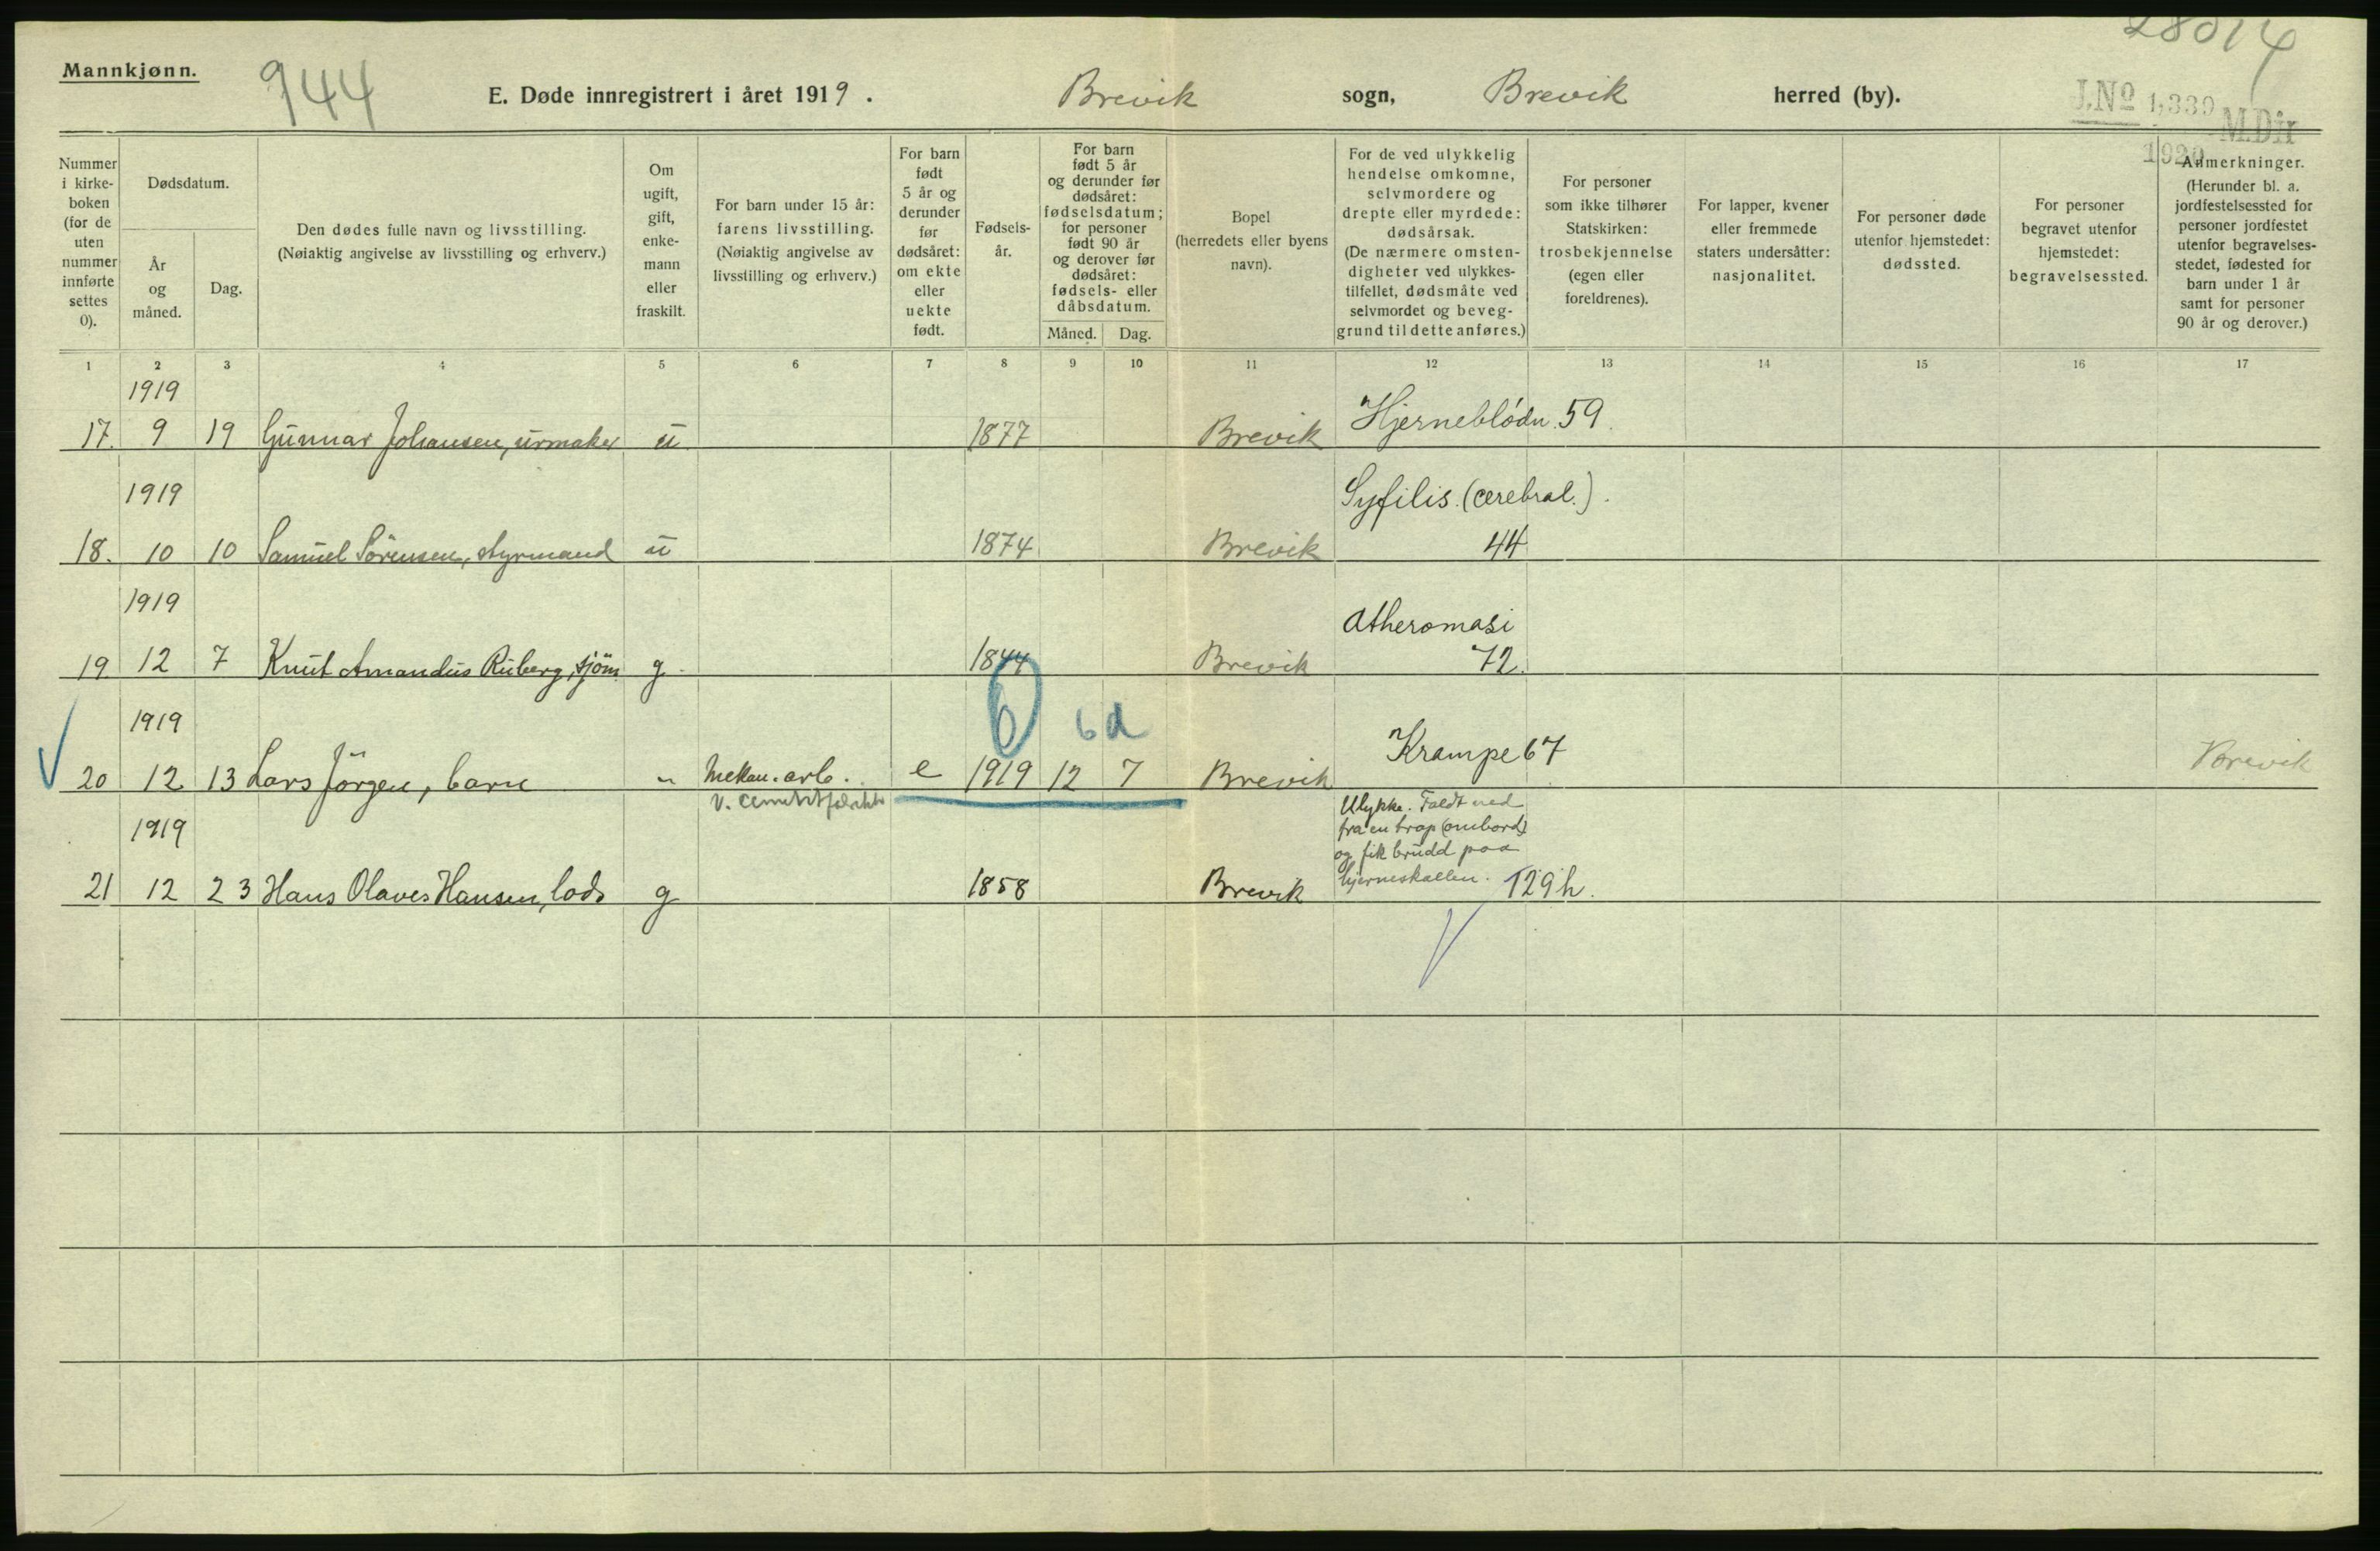 28014
Mannkjønn.
944
E. Døde innregistrert i året 1919.
Brevik sogn, Brevik herred (by).
J.No 1,339 M.Dir
1920
Nummer i kirke-boken (for de uten nummer innførte settes 0).
Dødsdatum.
År og måned.
Dag.
Den dødes fulle navn og livsstilling.
(Nøiaktig angivelse av livsstilling og erhverv.)
Om ugift, gift, enke-mann eller fraskilt.
For barn under 15 år: farens livsstilling.
(Nøiaktig angivelse av livsstilling og erhverv.)
For barn født 5 år og derunder før dødsåret: om ekte eller uekte født.
Fødsels-år.
For barn født 5 år og derunder før dødsåret: fødselsdatum; for personer født 90 år og derover før dødsåret: fødsels- eller dåbsdatum.
Måned. Dag.
Bopel (herredets eller byens navn).
For de ved ulykkelig hendelse omkomne, selvmordere og drepte eller myrdede: dødsårsak.
(De nærmere omsten-digheter ved ulykkes-tilfellet, dødsmåte ved selvmordet og beveg-grund til dette anføres.)
For personer som ikke tilhører Statskirken: trosbekjennelse (egen eller foreldrenes).
For lapper, kvener eller fremmede staters undersåtter: nasjonalitet.
For personer døde utenfor hjemstedet: dødssted.
For personer begravet utenfor hjemstedet: begravelsessted.
Anmerkninger.
(Herunder bl. a. jordfestelsessted for personer jordfestet utenfor begravelses-stedet, fødested for barn under 1 år samt for personer 90 år og derover.)
1 2 3 4 5 6 7 8 9 10 11 12 13 14 15 16 17
1919
17. 9 19 Gunnar Johansen, urmaker u 1877 Brevik Hjerneblödn. 59.
1919 Syfilis. (cerebral.).
18. 10 10 Samuel Sörensen, styrmand u 1874 Brevik 44
1919 Atheromasi
19 12 7 Knut Amandus Ruberg, sjöm. g. 1844 Brevik 72.
1919 6 6 d
20 12 13 Lars Jörgen, barn " Mekan. arb. e 1919 12 7 Brevik Krampe 67 Brevik
v. cementfabrikk
1919
Ulykke. Faldt ned
fra en trap (ombord)
og fik brudd paa
hjerneskallen. 129h.
21 12 23 Hans Olaves Hansen, lods g 1858 Brevik